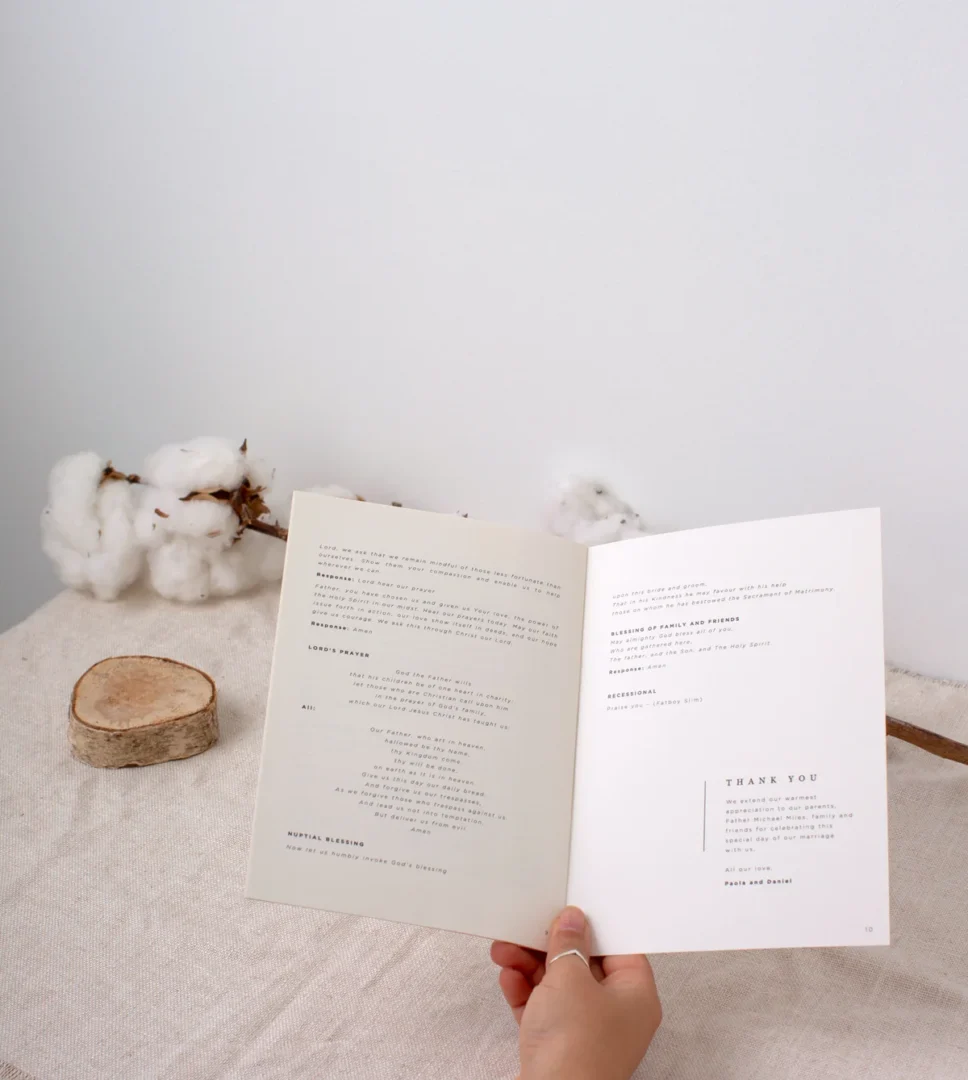 Lord, we ask that we remain mindful of those less fortunate than
ourselves. Show them your compassion and enable us to help
wherever we can.
Response: Lord hear our prayer
Father, you have chosen us and given us Your love, the power of
the Holy Spirit in our midst. Hear our prayers today. May our faith
issue forth in action, our love show itself in deeds, and our hope
give us courage. We ask this through Christ our Lord.
Response: Amen
LORD'S PRAYER
God the Father wills
that his children be of one heart in charity;
let those who are Christian call upon him
in the prayer of God's family,
which our Lord Jesus Christ has taught us:
All:
Our Father, who art in heaven,
hallowed be thy Name,
thy Kingdom come,
thy will be done,
on earth as it is in heaven.
Give us this day our daily bread.
And forgive us our trespasses,
As we forgive those who trespass against us.
And lead us not into temptation,
But deliver us from evil.
Amen
NUPTIAL BLESSING
Now let us humbly invoke God's blessing
upon this bride and groom,
That in his kindness he may favour with his help
those on whom he has bestowed the Sacrament of Matrimony.
BLESSING OF FAMILY AND FRIENDS
May almighty God bless all of you,
Who are gathered here,
The father, and the Son, and The Holy Spirit.
Response: Amen
RECESSIONAL
Praise you - (Fatboy Slim)
THANK YOU
We extend our warmest
appreciation to our parents,
Father Michael Miles, family and
friends for celebrating this
special day of our marriage
with us.
All our love,
Paola and Daniel
10